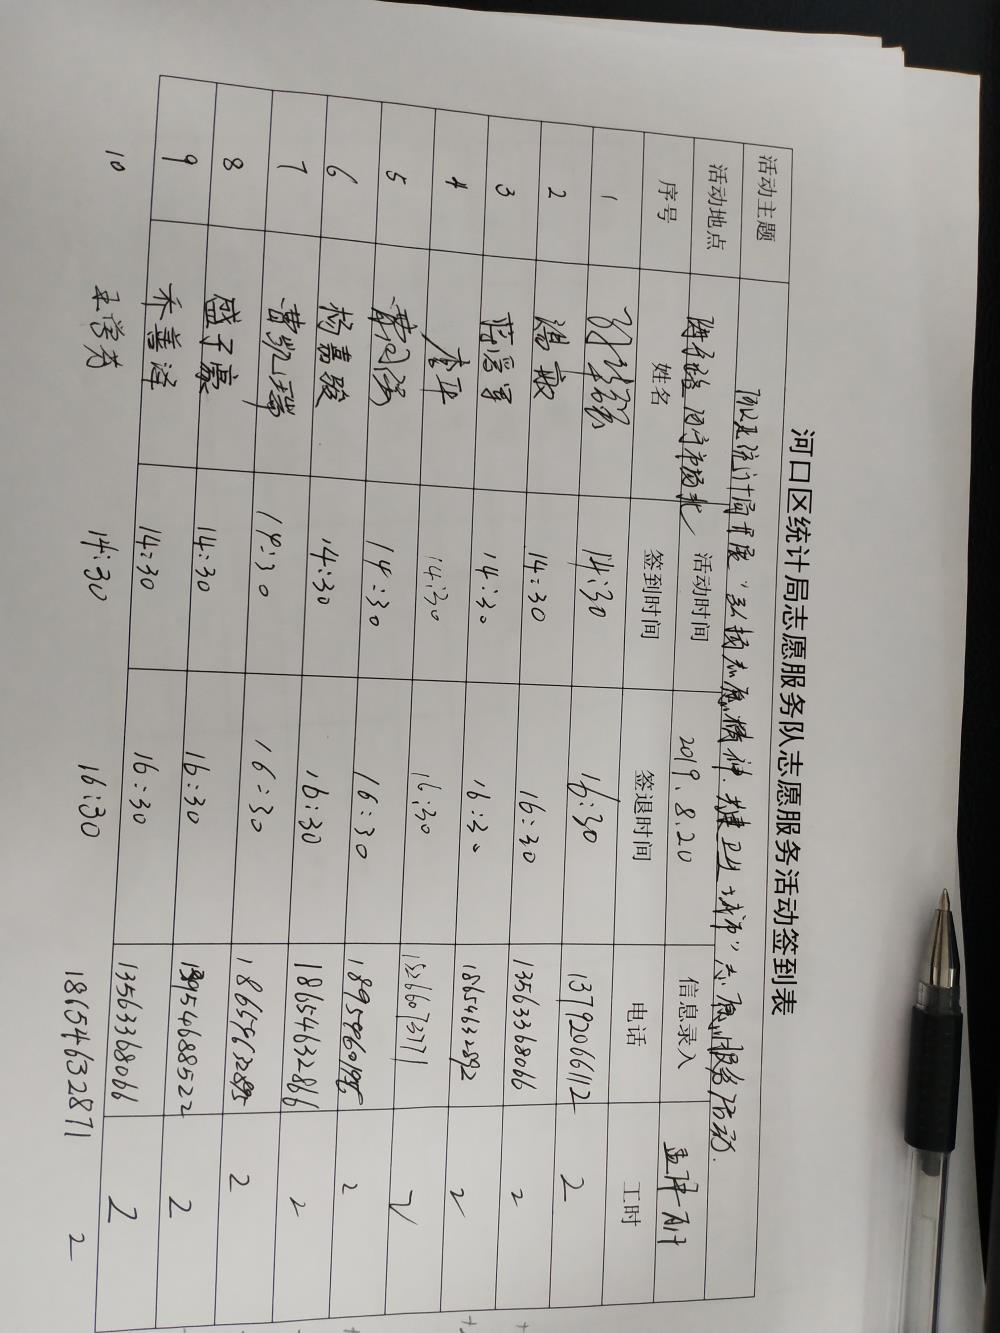 河口区统计局志愿服务队志愿服务活动签到表
活动主题 河口区统计局开展“弘扬志愿精神、共建卫生城市”志愿服务活动.
活动地点 市场北 活动时间 2019.8.20 信息录入
序号 姓名 签到时间 签退时间 电话 工时
1 14:30 16:30 13792066112 2
2 14:30 16:30 13563368066 2
3 14:30 16:30 18654632892 2
4 李平 14:30 16:30 15266073171 2
5 14:30 16:30 2
6 杨嘉骏 14:30 16:30 18654632866 2
7 曹凯瑞 14:30 16:30 2
8 盛子豪 14:30 16:30 13954688522 2
9 乔善泽 14:30 16:30 13563368066 2
10 王学芳 14:30 16:30 18654632871 2